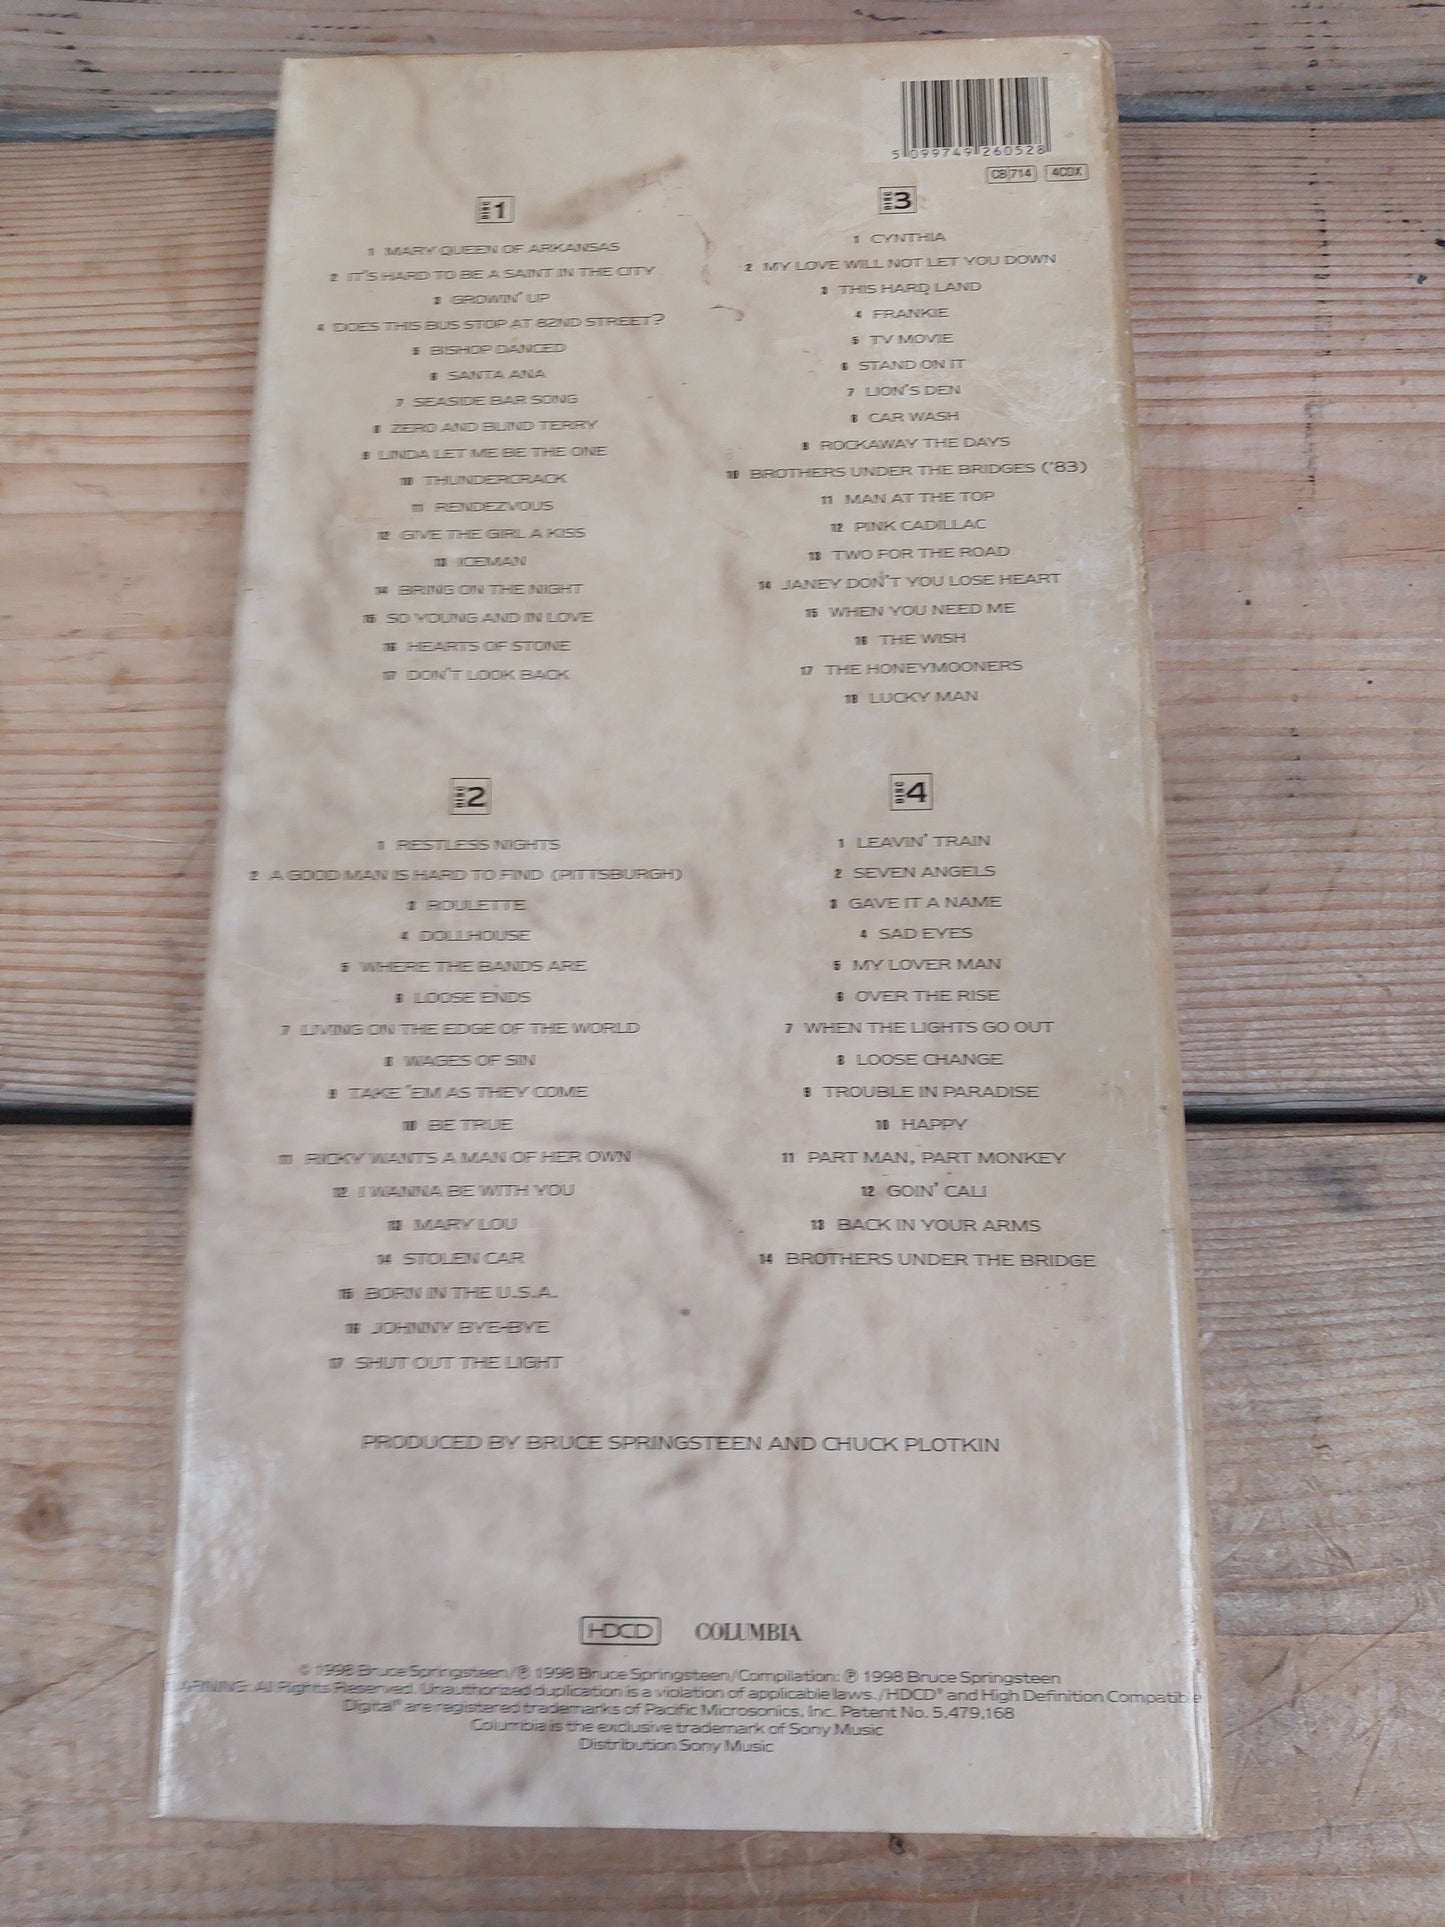 5 099749 260528
CB 714 4CDX
DISC 1
1 MARY QUEEN OF ARKANSAS
2 IT'S HARD TO BE A SAINT IN THE CITY
3 GROWIN' UP
4 DOES THIS BUS STOP AT 82ND STREET?
5 BISHOP DANCED
6 SANTA ANA
7 SEASIDE BAR SONG
8 ZERO AND BLIND TERRY
9 LINDA LET ME BE THE ONE
10 THUNDERCRACK
11 RENDEZVOUS
12 GIVE THE GIRL A KISS
13 ICEMAN
14 BRING ON THE NIGHT
15 SO YOUNG AND IN LOVE
16 HEARTS OF STONE
17 DON'T LOOK BACK
DISC 2
1 RESTLESS NIGHTS
2 A GOOD MAN IS HARD TO FIND (PITTSBURGH)
3 ROULETTE
4 DOLLHOUSE
5 WHERE THE BANDS ARE
6 LOOSE ENDS
7 LIVING ON THE EDGE OF THE WORLD
8 WAGES OF SIN
9 TAKE 'EM AS THEY COME
10 BE TRUE
11 RICKY WANTS A MAN OF HER OWN
12 I WANNA BE WITH YOU
13 MARY LOU
14 STOLEN CAR
15 BORN IN THE U.S.A.
16 JOHNNY BYE-BYE
17 SHUT OUT THE LIGHT
DISC 3
1 CYNTHIA
2 MY LOVE WILL NOT LET YOU DOWN
3 THIS HARD LAND
4 FRANKIE
5 TV MOVIE
6 STAND ON IT
7 LION'S DEN
8 CAR WASH
9 ROCKAWAY THE DAYS
10 BROTHERS UNDER THE BRIDGES ('83)
11 MAN AT THE TOP
12 PINK CADILLAC
13 TWO FOR THE ROAD
14 JANEY DON'T YOU LOSE HEART
15 WHEN YOU NEED ME
16 THE WISH
17 THE HONEYMOONERS
18 LUCKY MAN
DISC 4
1 LEAVIN' TRAIN
2 SEVEN ANGELS
3 GAVE IT A NAME
4 SAD EYES
5 MY LOVER MAN
6 OVER THE RISE
7 WHEN THE LIGHTS GO OUT
8 LOOSE CHANGE
9 TROUBLE IN PARADISE
10 HAPPY
11 PART MAN, PART MONKEY
12 GOIN' CALI
13 BACK IN YOUR ARMS
14 BROTHERS UNDER THE BRIDGE
PRODUCED BY BRUCE SPRINGSTEEN AND CHUCK PLOTKIN
HDCD COLUMBIA
© 1998 Bruce Springsteen/℗ 1998 Bruce Springsteen/Compilation: ℗ 1998 Bruce Springsteen
WARNING: All Rights Reserved. Unauthorized duplication is a violation of applicable laws. /HDCD® and High Definition Compatible
Digital® are registered trademarks of Pacific Microsonics, Inc. Patent No. 5,479,168
Columbia is the exclusive trademark of Sony Music
Distribution Sony Music